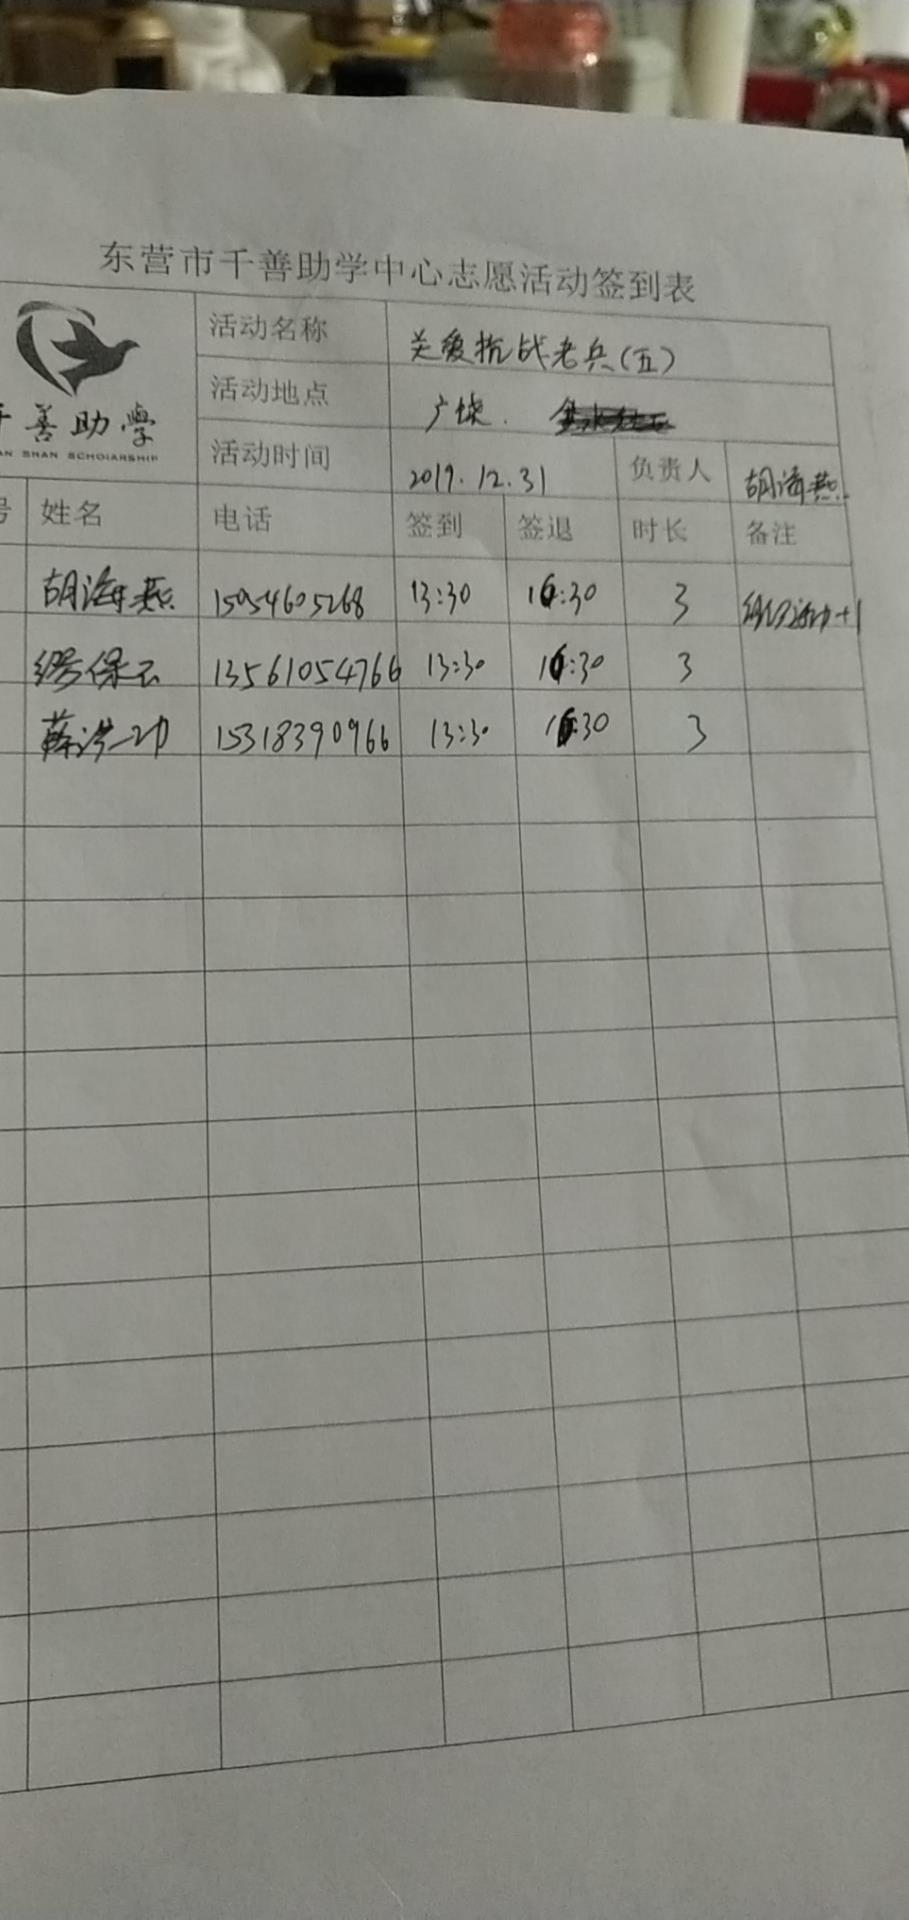 东营市千善助学中心志愿活动签到表
善助學
SHAN SCHOLARSHIP
活动名称 关爱抗战老兵(五)
活动地点 广饶.
活动时间 2019.12.31 负责人 胡海燕
号 姓名 电话 签到 签退 时长 备注
胡海燕 15054605268 13:30 16:30 3
缪保云 13561054766 13:30 16:30 3
薛洪功 15318390966 13:30 16:30 3